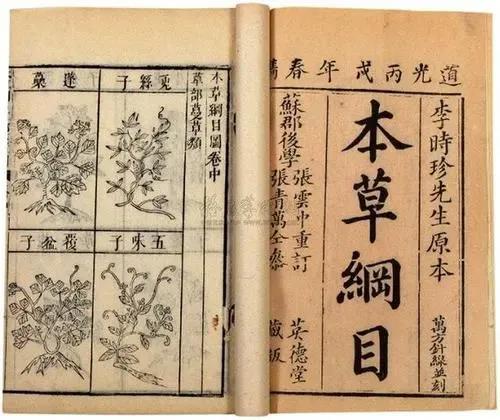 道光丙戌年春
李時珍先生原本
萬方針線並刻
本草綱目
張雲中重訂
蘇郡後學
張青萬仝參
英德堂
藏版
本草綱目圖卷中
草部蔓草類
兎絲子
五味子
蓬
覆盆子